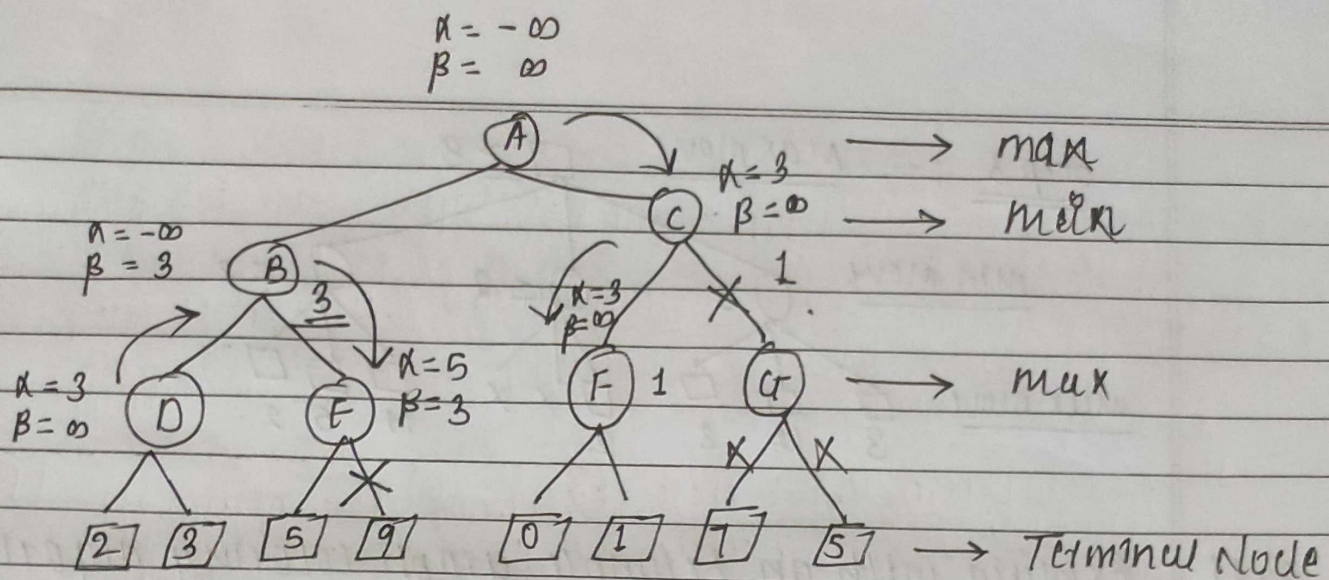 α = - ∞
β = ∞
A → max
α = 3
C β = ∞ → mein
α = -∞
β = 3 B
3
α = 3
β = ∞
1
α = 3
β = ∞ D
E α = 5
β = 3
F 1 G → max
2 3 5 9 0 1 7 5 → Terminal Node